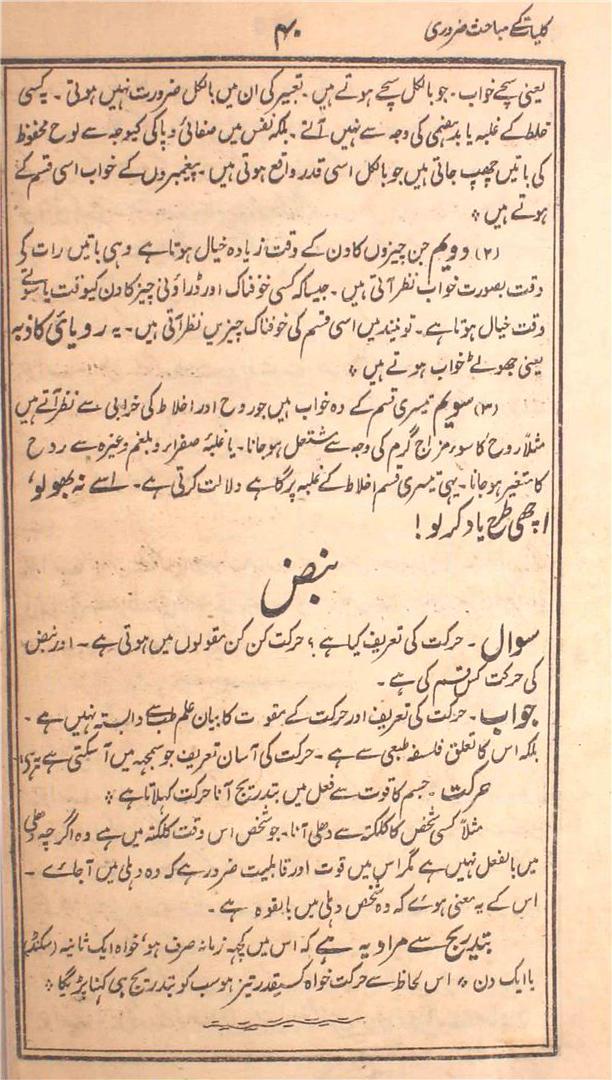 کلیات کے مباحث ضروری
۴۰
یعنی سچے خواب۔ جو بالکل سچے ہوتے ہیں۔ تعبیر کی ان میں بالکل ضرورت نہیں ہوتی۔ یہ کسی
خلط کے غلبہ یا بدہضمی کی وجہ سے نہیں آتے۔ بلکہ نفس میں صفائی و پاکی کیوجہ سے لوح محفوظ
کی باتیں چھپ جاتی ہیں جو بالکل اسی قدر واقع ہوتی ہیں۔ پیغمبروں کے خواب اسی قسم کے
ہوتے ہیں ؞
(۲) دویم جن چیزوں کا دن کے وقت زیادہ خیال ہوتا ہے وہی باتیں رات کی
وقت بصورت خواب نظر آتی ہیں۔ جیسا کہ کسی خوفناک اور ڈراؤنی چیز کا دن کیوقت یا سوتے
وقت خیال ہوتا ہے۔ تو نیند میں اسی قسم کی خوفناک چیزیں نظر آتی ہیں۔ یہ رویائی کاذبہ
یعنی جھوٹے خواب ہوتے ہیں ؞
(۳) سویم تیسری قسم کے وہ خواب ہیں جو روح اور اخلاط کی خرابی سے نظر آتے ہیں
مثلاً روح کا سوء مزاج گرم کی وجہ سے مشتعل ہوجانا۔ یا غلبۂ صفرا و بلغم وغیرہ سے روح
کا متغیر ہوجانا۔ یہی تیسری قسم اخلاط کے غلبہ پر گاہے دلالت کرتی ہے۔ اسے نہ بھولو،
اچھی طرح یاد کر لو!
نبض
سوال۔ حرکت کی تعریف کیا ہے؟ حرکت کن کن مقولوں میں ہوتی ہے۔ اور نبض
کی حرکت کس قسم کی ہے۔
جواب۔ حرکت کی تعریف اور حرکت کے مقولات کا بیان علم طب سے وابستہ نہیں ہے۔
بلکہ اس کا تعلق فلسفہ طبعی سے ہے۔ حرکت کی آسان تعریف جو سمجھ میں آسکتی ہے یہ ہی
حرکت۔ جسم کا قوت سے فعل میں بتدریج آنا حرکت کہلاتا ہے ؞
مثلاً کسی شخص کا کلکتہ سے دھلی آنا۔ جو شخص اس وقت کلکتہ میں ہے وہ اگرچہ دھلی
میں بالفعل نہیں ہے مگر اس میں قوت اور قابلیت ضرور ہے کہ وہ دہلی میں آجائے۔
اس کے یہ معنی ہوئے کہ وہ شخص دہلی میں بالقوہ ہے۔
بتدریج سے مراد یہ ہے کہ اس میں کچھ زمانہ صرف ہو، خواہ ایک ثانیہ (سکنڈ)
یا ایک دن ؞ اس لحاظ سے حرکت خواہ کسیقدر تیز ہو سب کو بتدریج ہی کہنا پڑیگا ؞